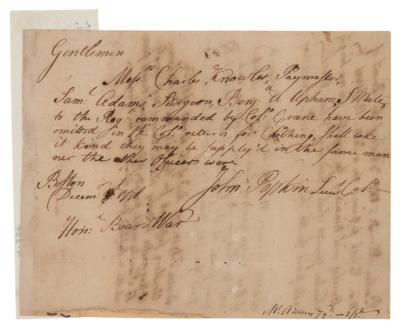 Gentlemen
Messrs Charles Knowles, Paymaster,
Saml Adams, Surgeon, Benj. Upham, S Mate,
to the Regt commanded by Col. Crane have been
omitted in Lt Cols return for Cloathing, shall take
it kind they may be supply'd in the same man
ner the other Officers were
Boston
Decem
John Popkin Lieut Col
Honl Board War